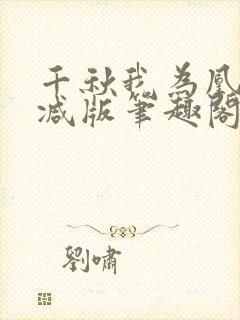 千秋我为凰
减版笔趣阁
劉嘯